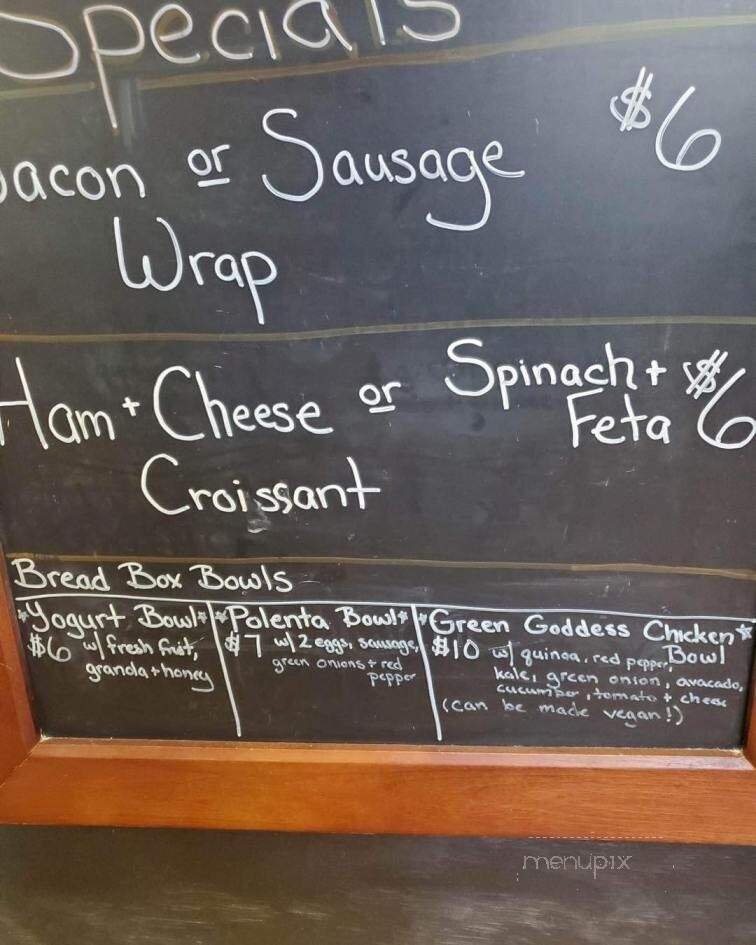 Specials
Bacon or Sausage $6
Wrap
Ham + Cheese or Spinach + $6
Feta
Croissant
Bread Box Bowls
*Yogurt Bowl*
$6 w/ fresh fruit,
granola + honey
*Polenta Bowl*
$7 w/ 2 eggs, sausage,
green onions + red
pepper
*Green Goddess Chicken*
Bowl
$10 w/ quinoa, red pepper,
kale, green onion, avacado,
cucumber, tomato + cheese
(can be made vegan!)
menupix